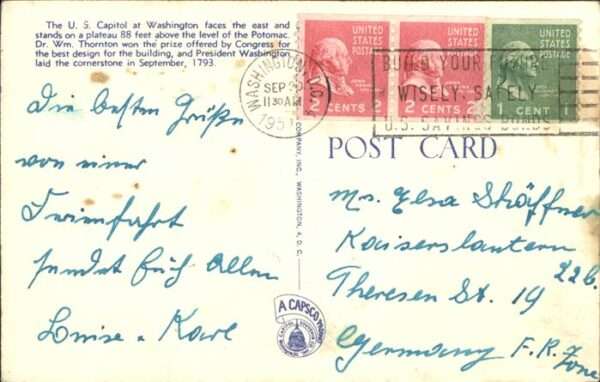 The U. S. Capitol at Washington faces the east and
stands on a plateau 88 feet above the level of the Potomac.
Dr. Wm. Thornton won the prize offered by Congress for
the best design for the building, and President Washington
laid the cornerstone in September, 1793.
UNITED STATES POSTAGE
2 CENTS 2
UNITED STATES POSTAGE
2 CENTS 2
UNITED STATES POSTAGE
1 CENT 1
WASHINGTON
SEP
11 30 AM
195
BUILD YOUR FUTURE
WISELY - SAFELY
U.S. SAVINGS BONDS
POST CARD
COMPANY, INC., WASHINGTON, D. C.
A CAPSCO
Die besten Grüße
von einer
Ferienfahrt
sendet Euch Allen
Louise u Karl
Mrs. Elsa Schäffner
Kaiserslautern
22b.
Theresen St. 19
Germany F. R.
Zone